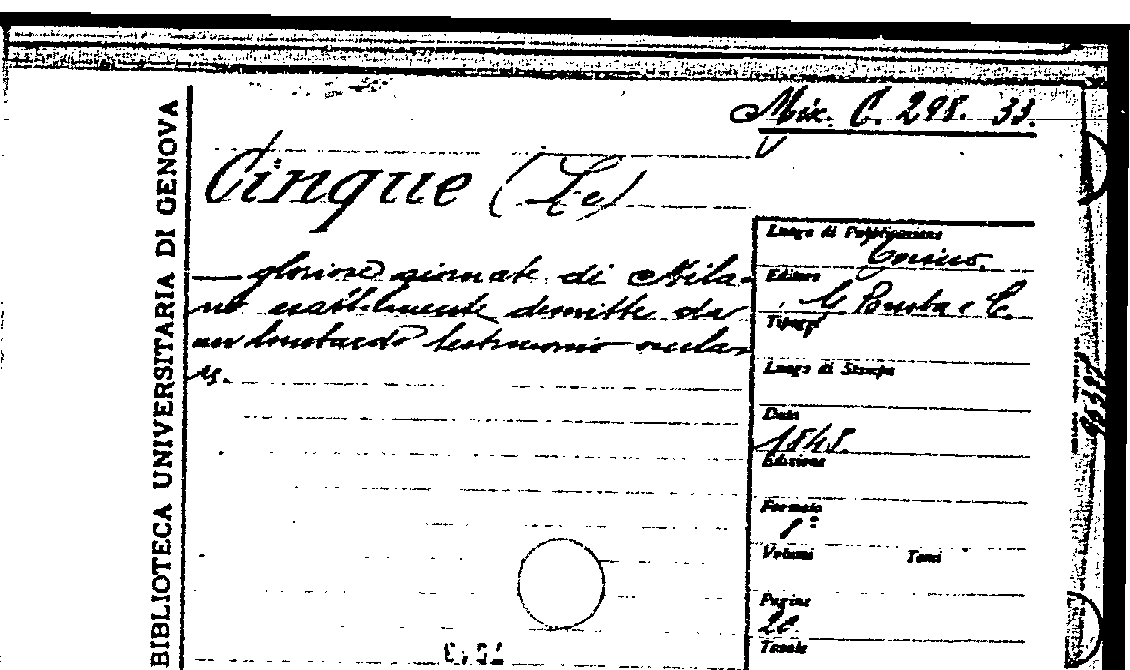 BIBLIOTECA UNIVERSITARIA DI GENOVA
Misc. C. 298. 33.
Cinque (Le)
— gloriose giornate di Mila-
no esattamente descritte da
un lombardo testimonio ocula-
re.
Luogo di Pubblicazione
Torino.
Editore
Tipogr
Luogo di Stampa
Data
1848.
Edizione
Formato
8°
Volumi Tomi
Pagine
20
Tavole